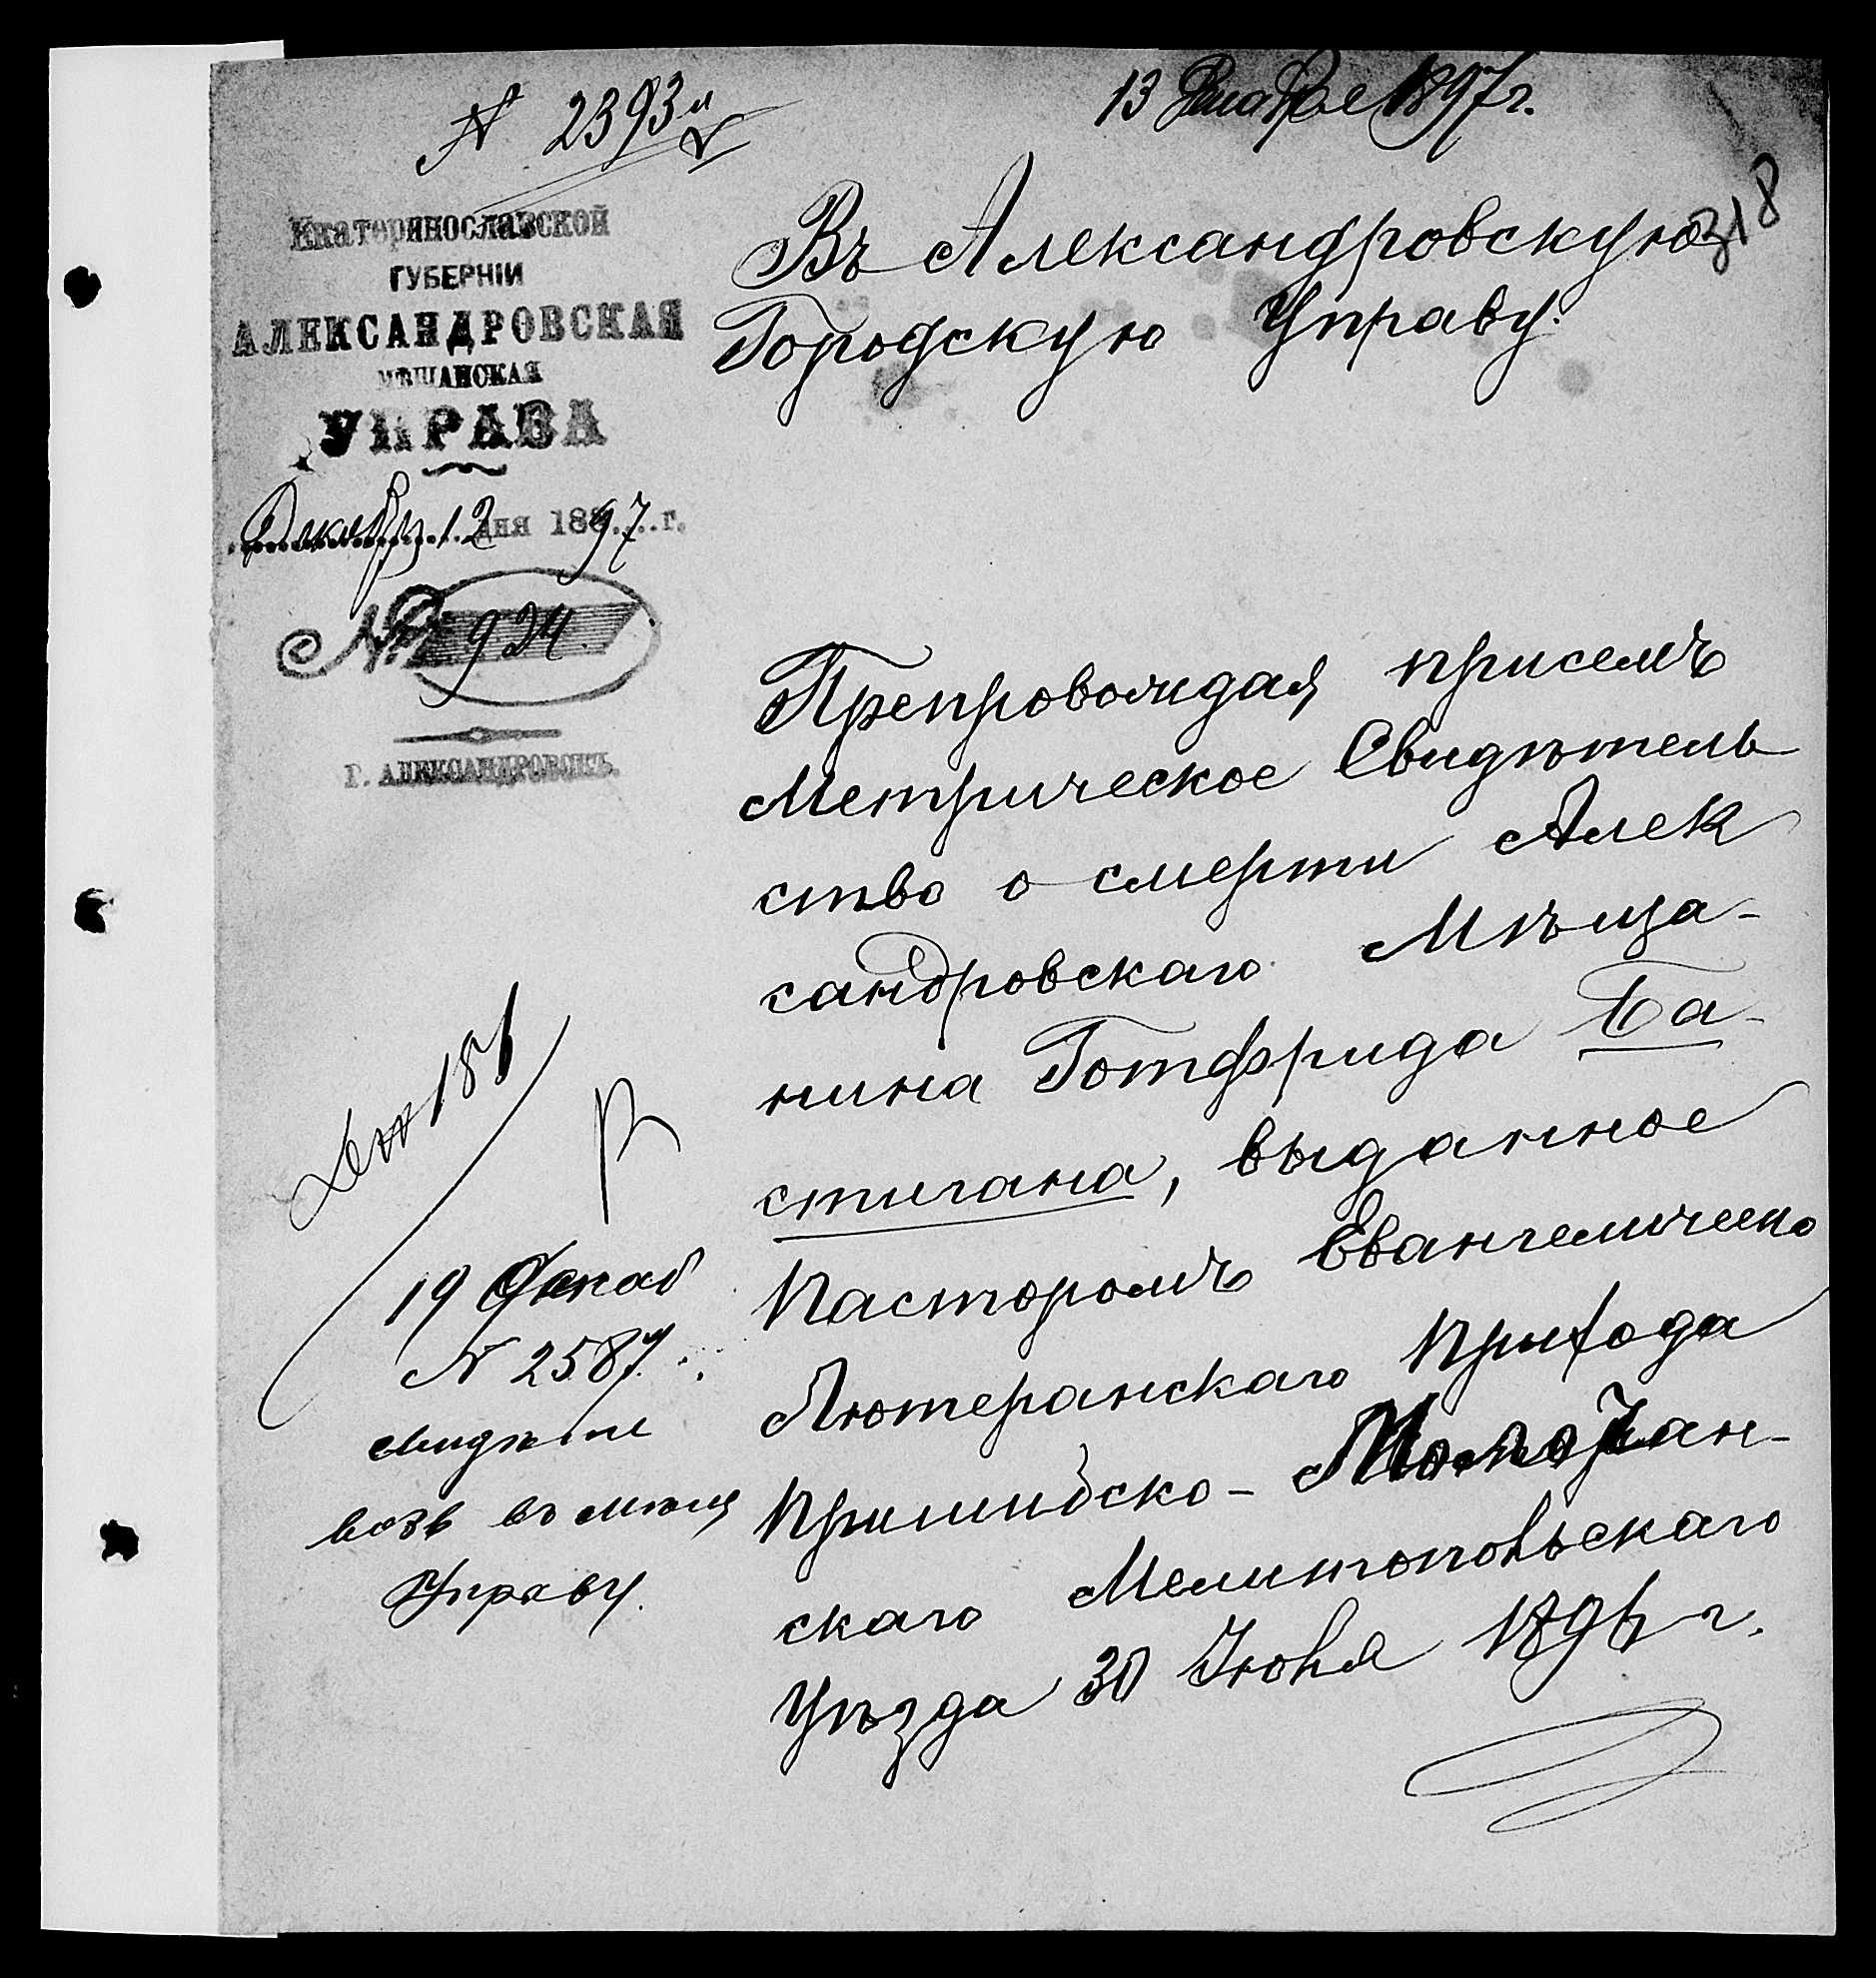 № 2393
13 Декабря 1897 г.
318
Екатеринославской
ГУБЕРНІИ
АЛЕКСАНДРОВСКАЯ
МѢЩАНСКАЯ
УПРАВА
Декабря 12 дня 1897 г.
№ 924.
Г. АЛЕКСАНДРОВСКЪ.
Въ Александровскую
Городскую Управу.
Препровождая присемъ
Метрическое Свидѣтель
ство о смерти Алек
сандровскаго Мѣща-
нина Готфрида Ба-
стигана, выданное
Пасторомъ Евангелическо
Лютеранскаго Прихода
Пришибско-Молочан-
скаго Мелитопольскаго
Уѣзда 30 Іюня 1896 г.
19 Декаб
№ 2587
возв въ мѣщ
Управу.